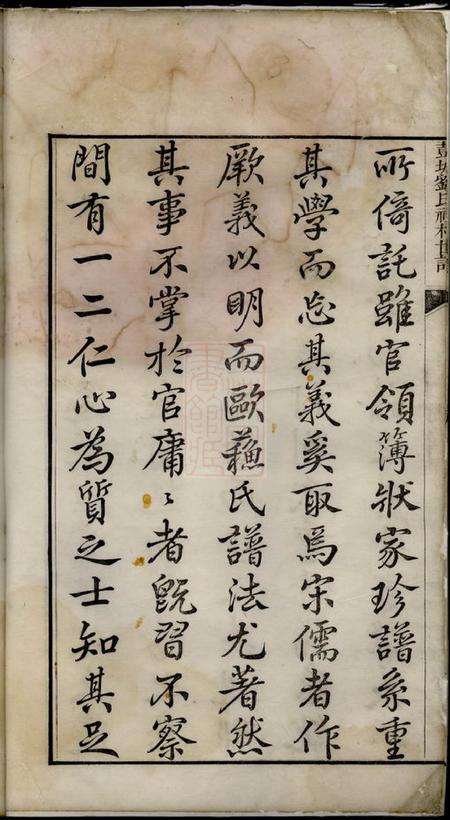 所倚託雖官領簿狀家珍譜系重
其學而忘其義奚取焉宋儒者作
厥義以明而歐蘓氏譜法尤著然
其事不掌於官庸〻者既習不察
間有一二仁心為質之士知其足